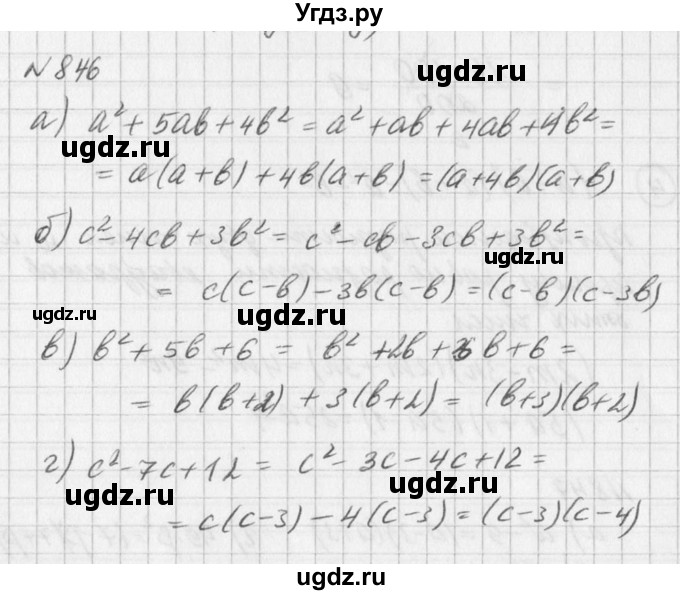 Угдз.ру
№ 846
а) a² + 5ab + 4b² = a² + ab + 4ab + 4b² =
ugdz.ru
= a(a+b) + 4b(a+b) = (a+4b)(a+b)
б) c² - 4cb + 3b² = c² - cb - 3cb + 3b² =
ugdz.ru
= c(c-b) - 3b(c-b) = (c-b)(c-3b)
ugdz.ru ugdz.ru
в) b² + 5b + 6 = b² + 2b + 3b + 6 =
= b(b+2) + 3(b+2) = (b+3)(b+2)
ugdz.ru
г) c² - 7c + 12 = c² - 3c - 4c + 12 =
ugdz.ru ugdz.ru
= c(c-3) - 4(c-3) = (c-3)(c-4)
ugdz.ru